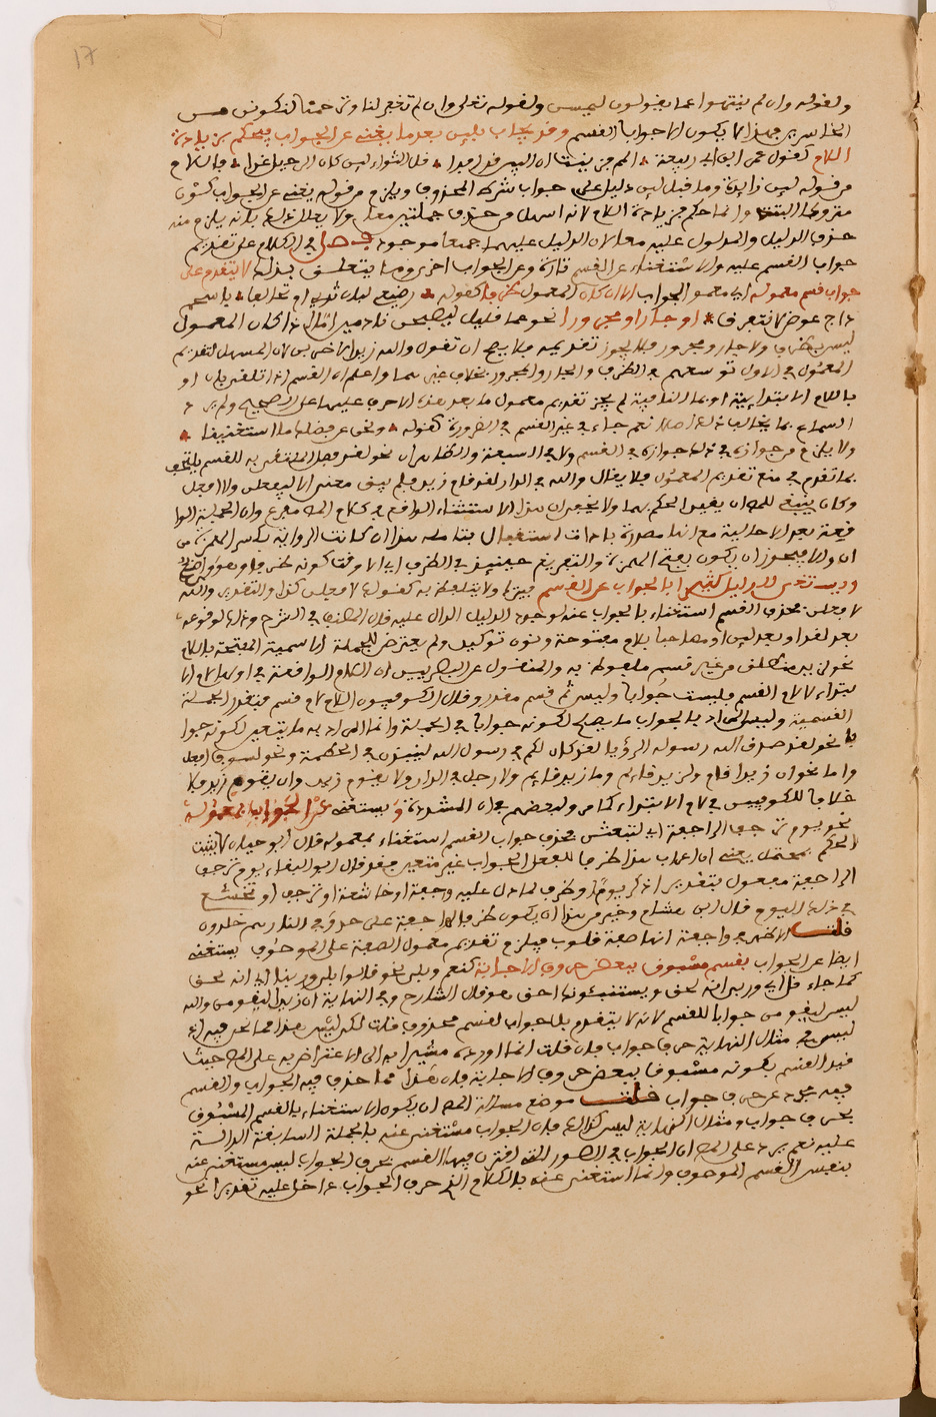 17
ولقوله وان لم ينتهوا عما يقولون ليمسن ولقوله تعلى وان لم تغفر لنا وترحمنا لنكونن من
الخاسرين فهذا لا يكون الا جواب القسم وقد يجاب بلين بعد ما يغني عن الجواب فيحكم بزيادة
اللام كقول عمر ابن ابي ربيعة الم بزينب ان البين قد افدا قل الثواء لين كان الرحيل غدا فاللام
من قوله لين زايدة وما قبل لين دليل على جواب شرطه المحذوف ويلزم من قوله يغني عن الجواب كون
حذف الدليل والمدلول عليه معا لان الدليل عليهما جميعا موجود فصل في الكلام على تقديم
جواب القسم عليه والاستغناء عن القسم تارة وعن الجواب اخرى وما يتعلق بذلك لا يتقدم على
جواب قسم معموله اي معمول الجواب الا ان كان المعمول ظرفا كقوله رضيعي لبان ثدي ام تحالفا باسحم
داج عوض لا نتفرق او جارا ومجرورا نحو عما قليل ليصبحن نادمين اما اذا كان المعمول
ليس بظرف ولا جار ومجرور فلا يجوز تقديمه فلا يصح ان تقول والله زيدا لاضربن لان المسهل لتقديم
المعمول في الاول توسعهم في الظرف والجار والمجرور بخلاف غيرهما واعلم ان القسم اذا تلقي بان او
باللام الابتدائية او بما النافية لم يجز تقديم معمول ما بعد هذه الاحرف عليها على الصحيح ولم يرد
السماع بما يخالف ذلك اصلا نعم جاء في غير القسم في الضرورة كقوله ونحن عن فضلك ما استغنينا
ولا يلزم من جوازه في ذلك جوازه في القسم ولا في السعة
بما تقدم في منع تقديم المعمول فلا يقال والله في الدار لقد قام زيد
وكان ينبغي للمص ان يقيد الحكم بهما ولا يخفى ان هذا الاستثناء الواقع في كلام المص مفرع وان الجملة الوا
قعة بعد الا حالية مع انها مصدرة باداة استقبال بناء على هذا ان كانت الرواية بكسر الهمزة من
ان والا فيجوز ان يكون بفتح الهمزة والتفريغ حينيذ في الظرف اي الا وقت كونه ظرفا
ويستغنى للدليل كثيرا بالجواب عن القسم فيقدر ولا يتلفظ به كقولك لافعلن كذا والتقدير والله
لافعلن فحذف القسم استغناء بالجواب عنه لوجود الدليل الدال عليه قال المصنف في الشرح وذلك لوقوعه
بعد لقد او بعد لين او مصاحبا بلام مفتوحة ونون توكيد ولم يتعرض للجملة الاسمية المفتتحة باللام
نحو لزيد منطلق من غير قسم ملفوظ به والمنقول عن البصريين ان اللام الواقعة في اولها لام الا
بتداء لا لام القسم فليست جوابا وليس ثم قسم مقدر وقال الكوفيون اللام لام قسم فتقدر الجملة
القسمية وليس المراد بالجواب ما يصلح لكونه جوابا في الجملة وانما المراد به ما يتعين لكونه جوا
با نحو لقد صدق الله رسوله الرؤيا لقد كان لكم في رسول الله لينبذن في الحطمة ونحو لسوف افعل
واما نحو ان زيدا قام ولزيد قايم وما زيد قايم ولا رجل في الدار ولا يقوم زيد وان يقوم زيد فلا
خلافا للكوفيين في لام الابتداء كما مر ولبعضهم في ان المشددة ويستغنى عن الجواب بمعموله
نحو يوم ترجف الراجفة اي لتبعثن فحذف جواب القسم استغناء بمعموله قال ابو حيان لا يثبت
الحكم بمحتمل يعني ان اعراب هذا ظرفا للفعل الجواب غير متعين فقد قال ابو البقاء يوم ترجف
الراجفة مفعول بتقدير اذكر يوم او ظرف لما دل عليه واجفة او خاشعة او ترجف او تخشع
في ذلك اليوم قال ابن هشام وخير من هذا ان يكون ظرفا لواجفة على حد وفي النار هم خلدون
قلت الاظهر في واجفة انها صفة قلوب فيلزم تقديم معمول الصفة على الموصوف ويستغنى
ايضا عن الجواب بقسم مسبوق ببعض حروف الاجابة كنعم وبلى نحو قالوا بلى وربنا اي انه لحق
كما جاء قل اي وربي انه لحق ويستنبئونك احق هو قال الشارح وفي النهاية ان زيدا ليقومن والله
ليس ليقومن جوابا للقسم لانه لا يتقدم بل جواب لقسم محذوف قلت لكن ليس هذا مما نحن فيه اذ
ليس في مثال النهاية حرف جواب فان قلت انما اورده مشيرا به الى الاعتراض به على المص حيث
قيد القسم بكونه مسبوقا ببعض حروف الاجابة فان هذا مما حذف فيه الجواب والقسم
فيه مجرد عن حرف جواب قلت موضع مسالة المص ان يكون الاستغناء بالقسم المسبوق
بحرف جواب ومثال النهاية ليس كذلك فان الجواب مستغنى عنه بالجملة السابقة الدالة
عليه نعم يرد على المص ان الجواب في الصور التي اقترن فيها القسم بحرف الجواب ليس مستغنى عنه
بنفس القسم الموصوف وانما استغنى عنه بالكلام الذي حرف الجواب داخل عليه تقديرا نحو